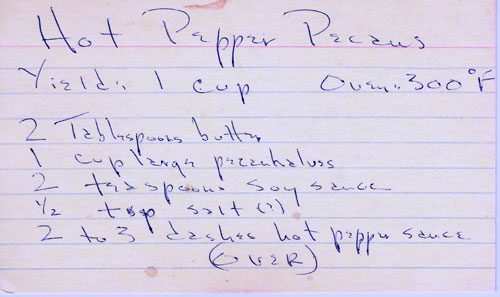 Hot Pepper Pecans
Yield: 1 cup Oven: 300°F
2 Tablespoons butter
1 cup large pecan halves
2 teaspoons soy sauce
1/2 tsp salt (?)
2 to 3 dashes hot pepper sauce
(OVER)